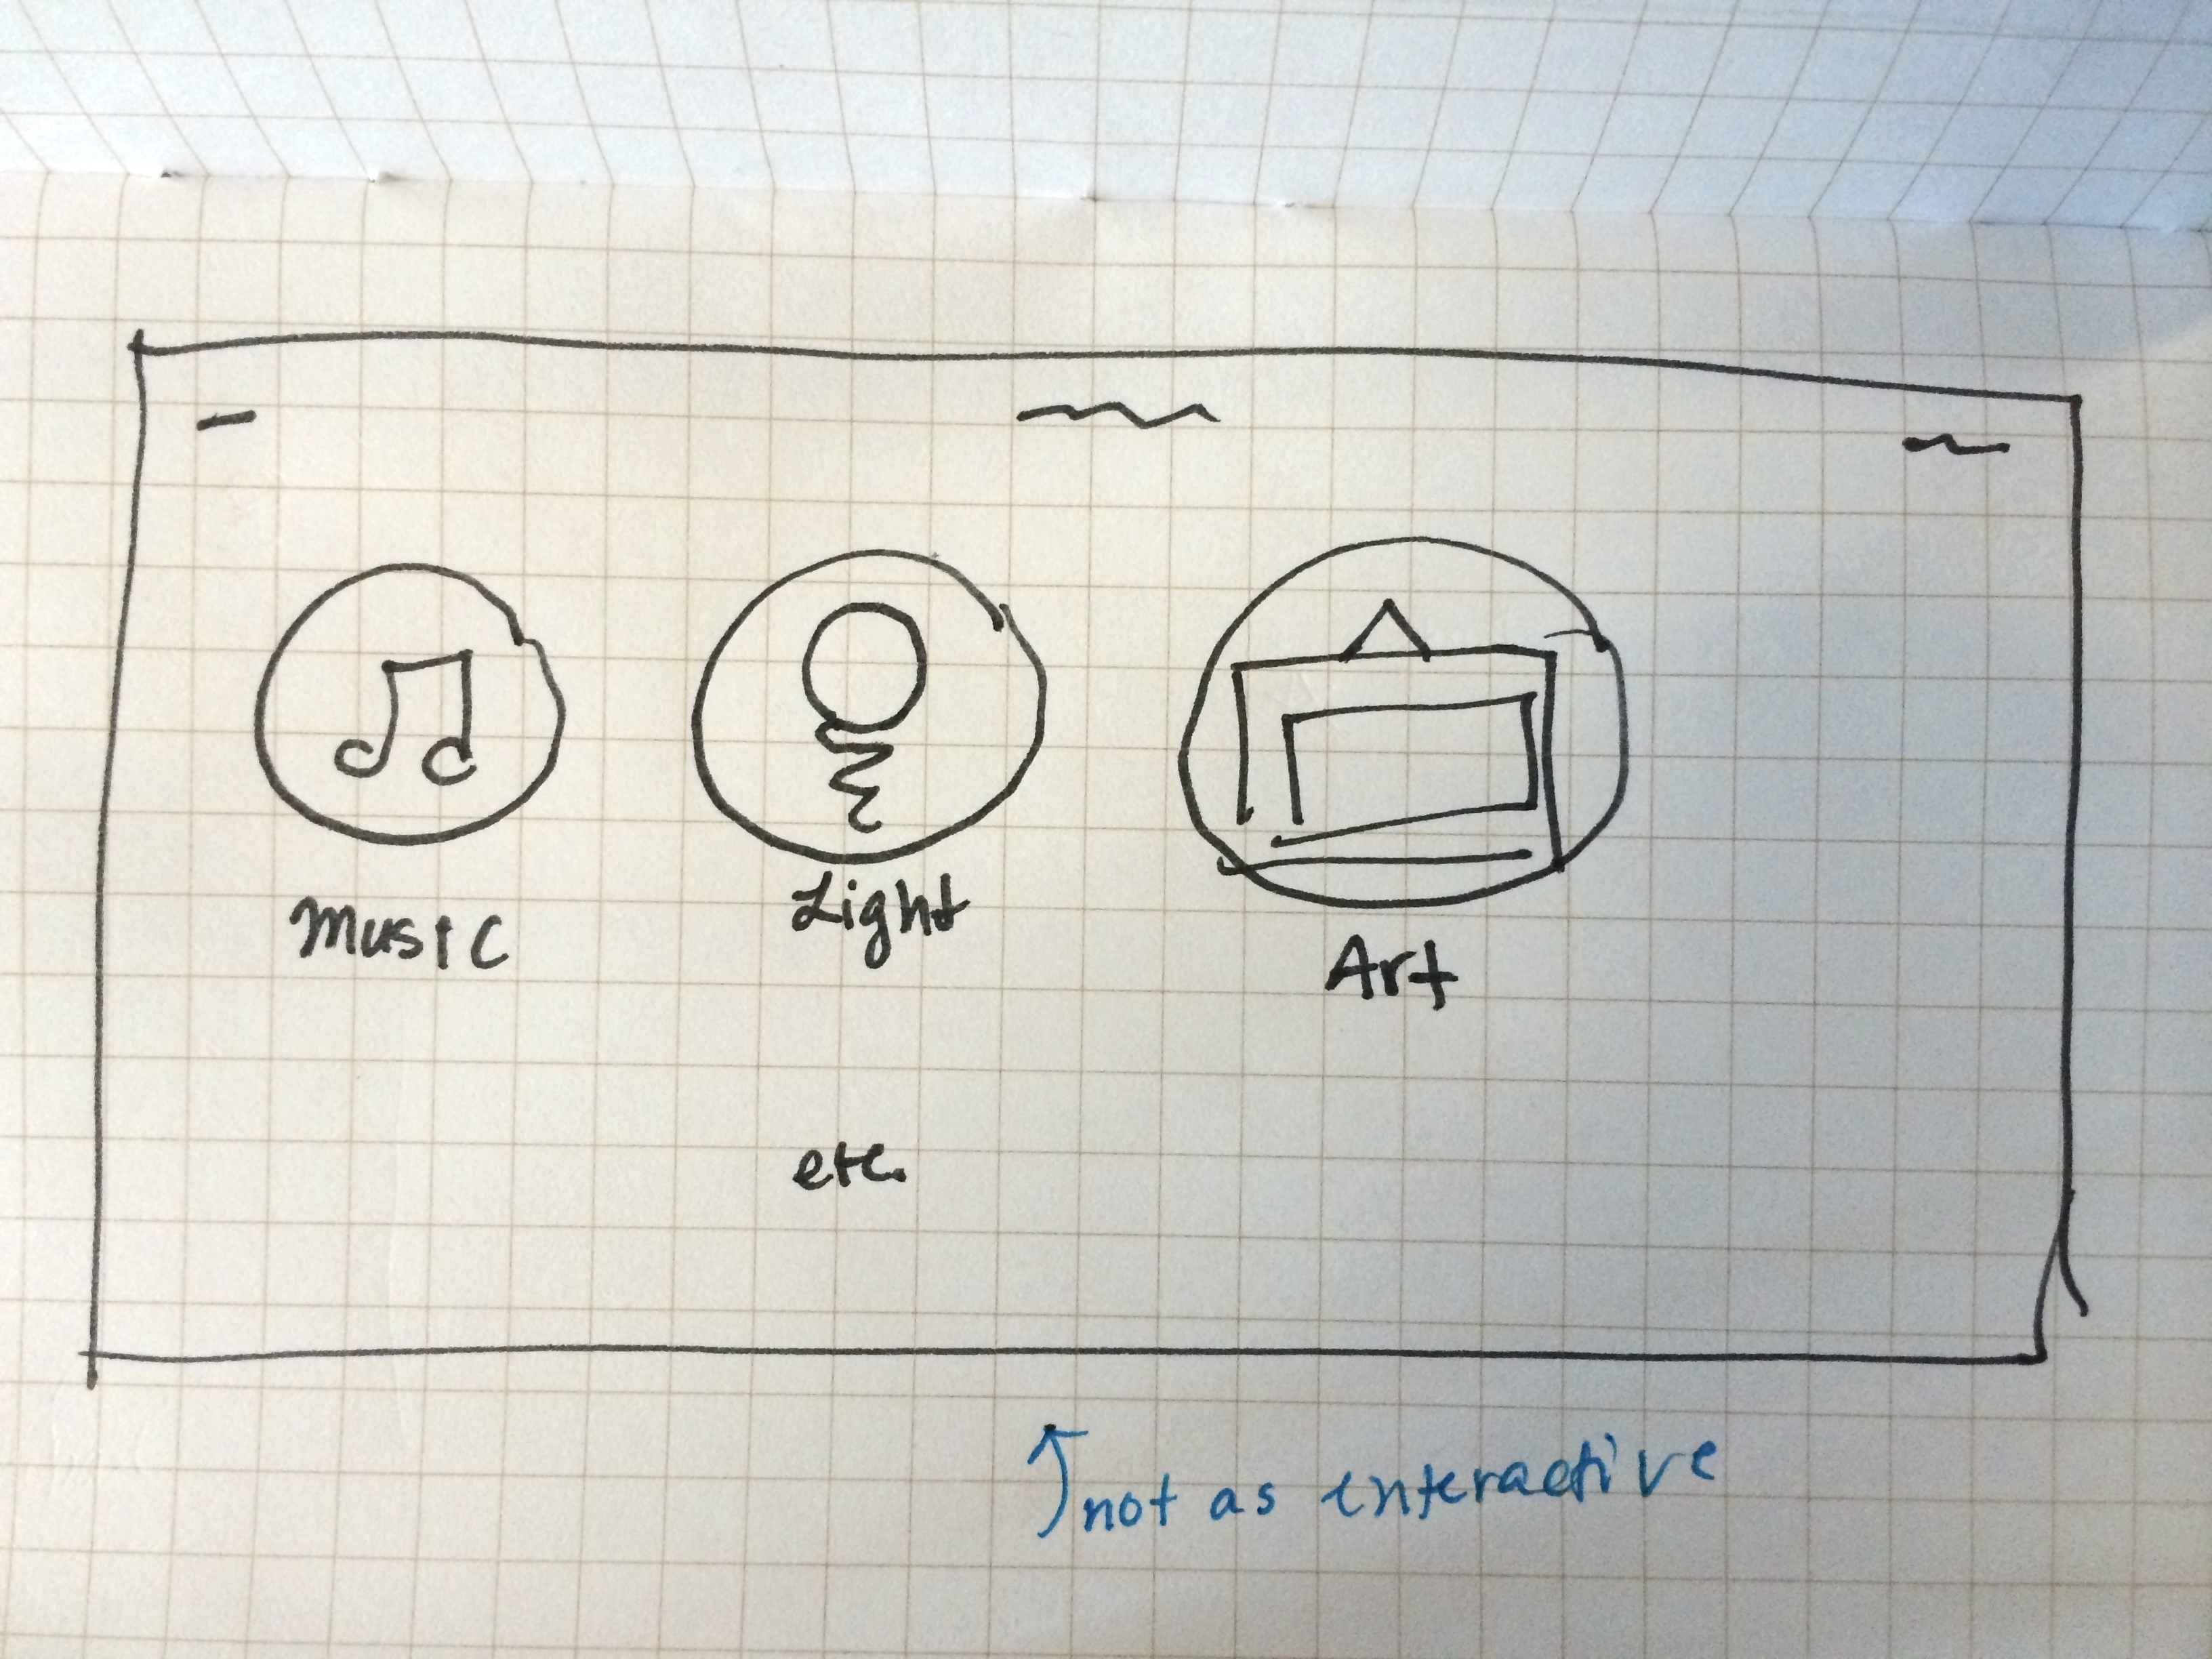 Music
Light
Art
etc.
not as interactive